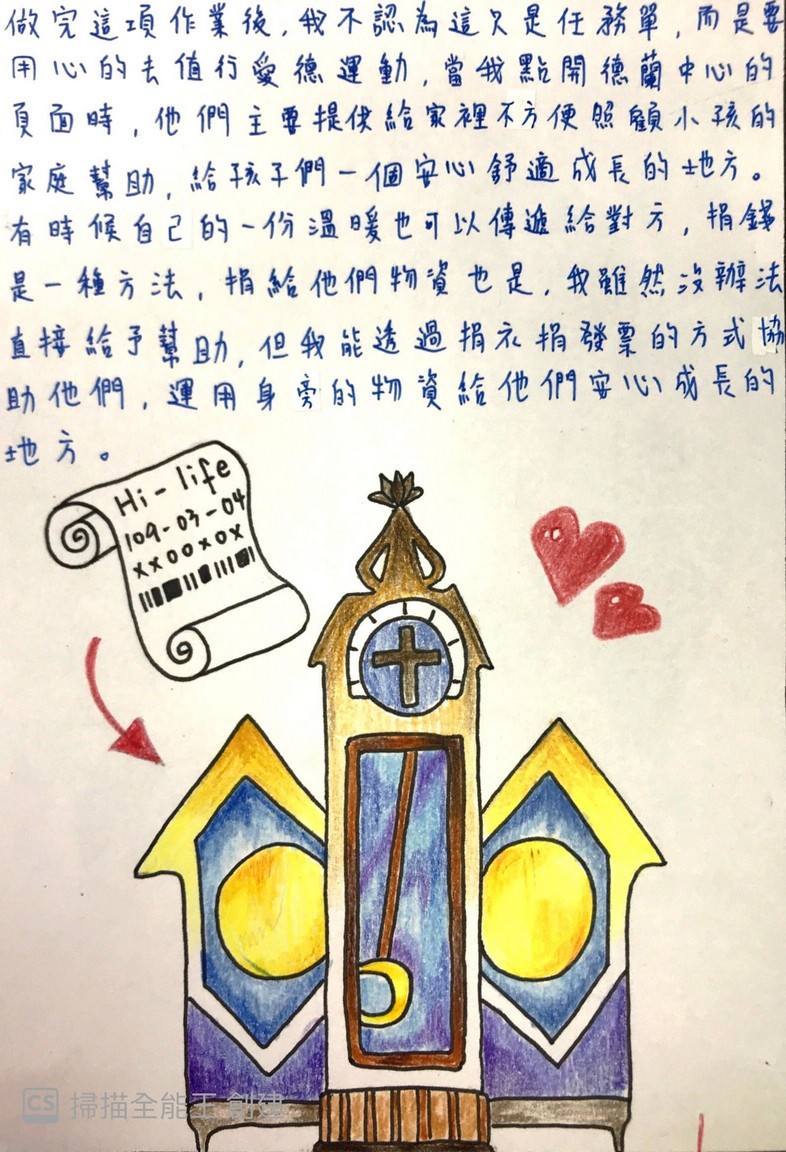 做完這項作業後，我不認為這只是任務單，而是要
用心的去值行愛德運動，當我點開德蘭中心的
頁面時，他們主要提供給家裡不方便照顧小孩的
家庭幫助，給孩子們一個安心舒適成長的地方。
有時候自己的一份溫暖也可以傳遞給對方，捐錢
是一種方法，捐給他們物資也是，我雖然沒辦法
直接給予幫助，但我能透過捐衣捐發票的方式協
助他們，運用身旁的物資給他們安心成長的
地方。
Hi-life
109-03-04
xx00x0x
CS 掃描全能王 創建